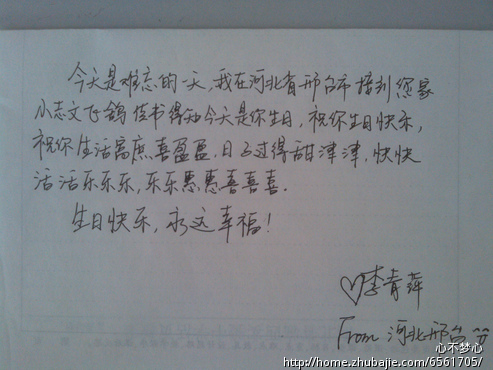 今天是难忘的一天,我在河北省邢台市接到您家
小志文飞鸽传书得知今天是你生日,祝你生日快乐,
祝你生活富庶喜盈盈,日子过得甜津津,快快
活活乐乐乐,乐乐惠惠喜喜喜.
生日快乐,永远幸福!
♡李青萍
From 河北邢台
心不梦心
http://home.zhubajie.com/6561705/